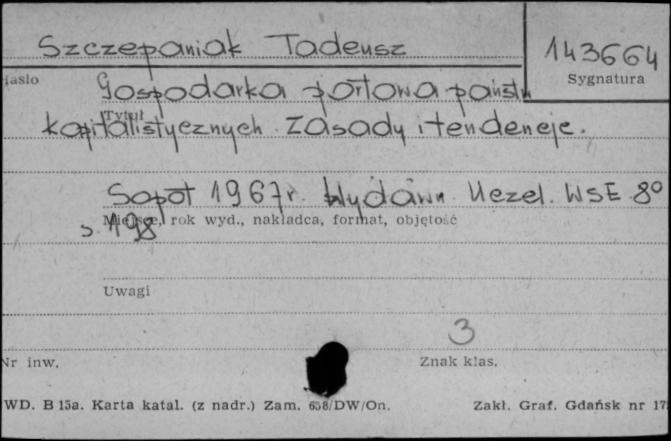 Szczepaniak Tadeusz
143664
Hasło
Sygnatura
Gospodarka portowa państw
Tytuł
kapitalistycznych. Zasady i tendencje.
Sopot 1967r. Wydawn. Uczel. WSE 8º
Miejsce, rok wyd., nakładca, format, objętość
s. 198
Uwagi
3
Nr inw.
Znak klas.
WD. B 15a. Karta katal. (z nadr.) Zam. 658/DW/On.
Zakł. Graf. Gdańsk nr 17